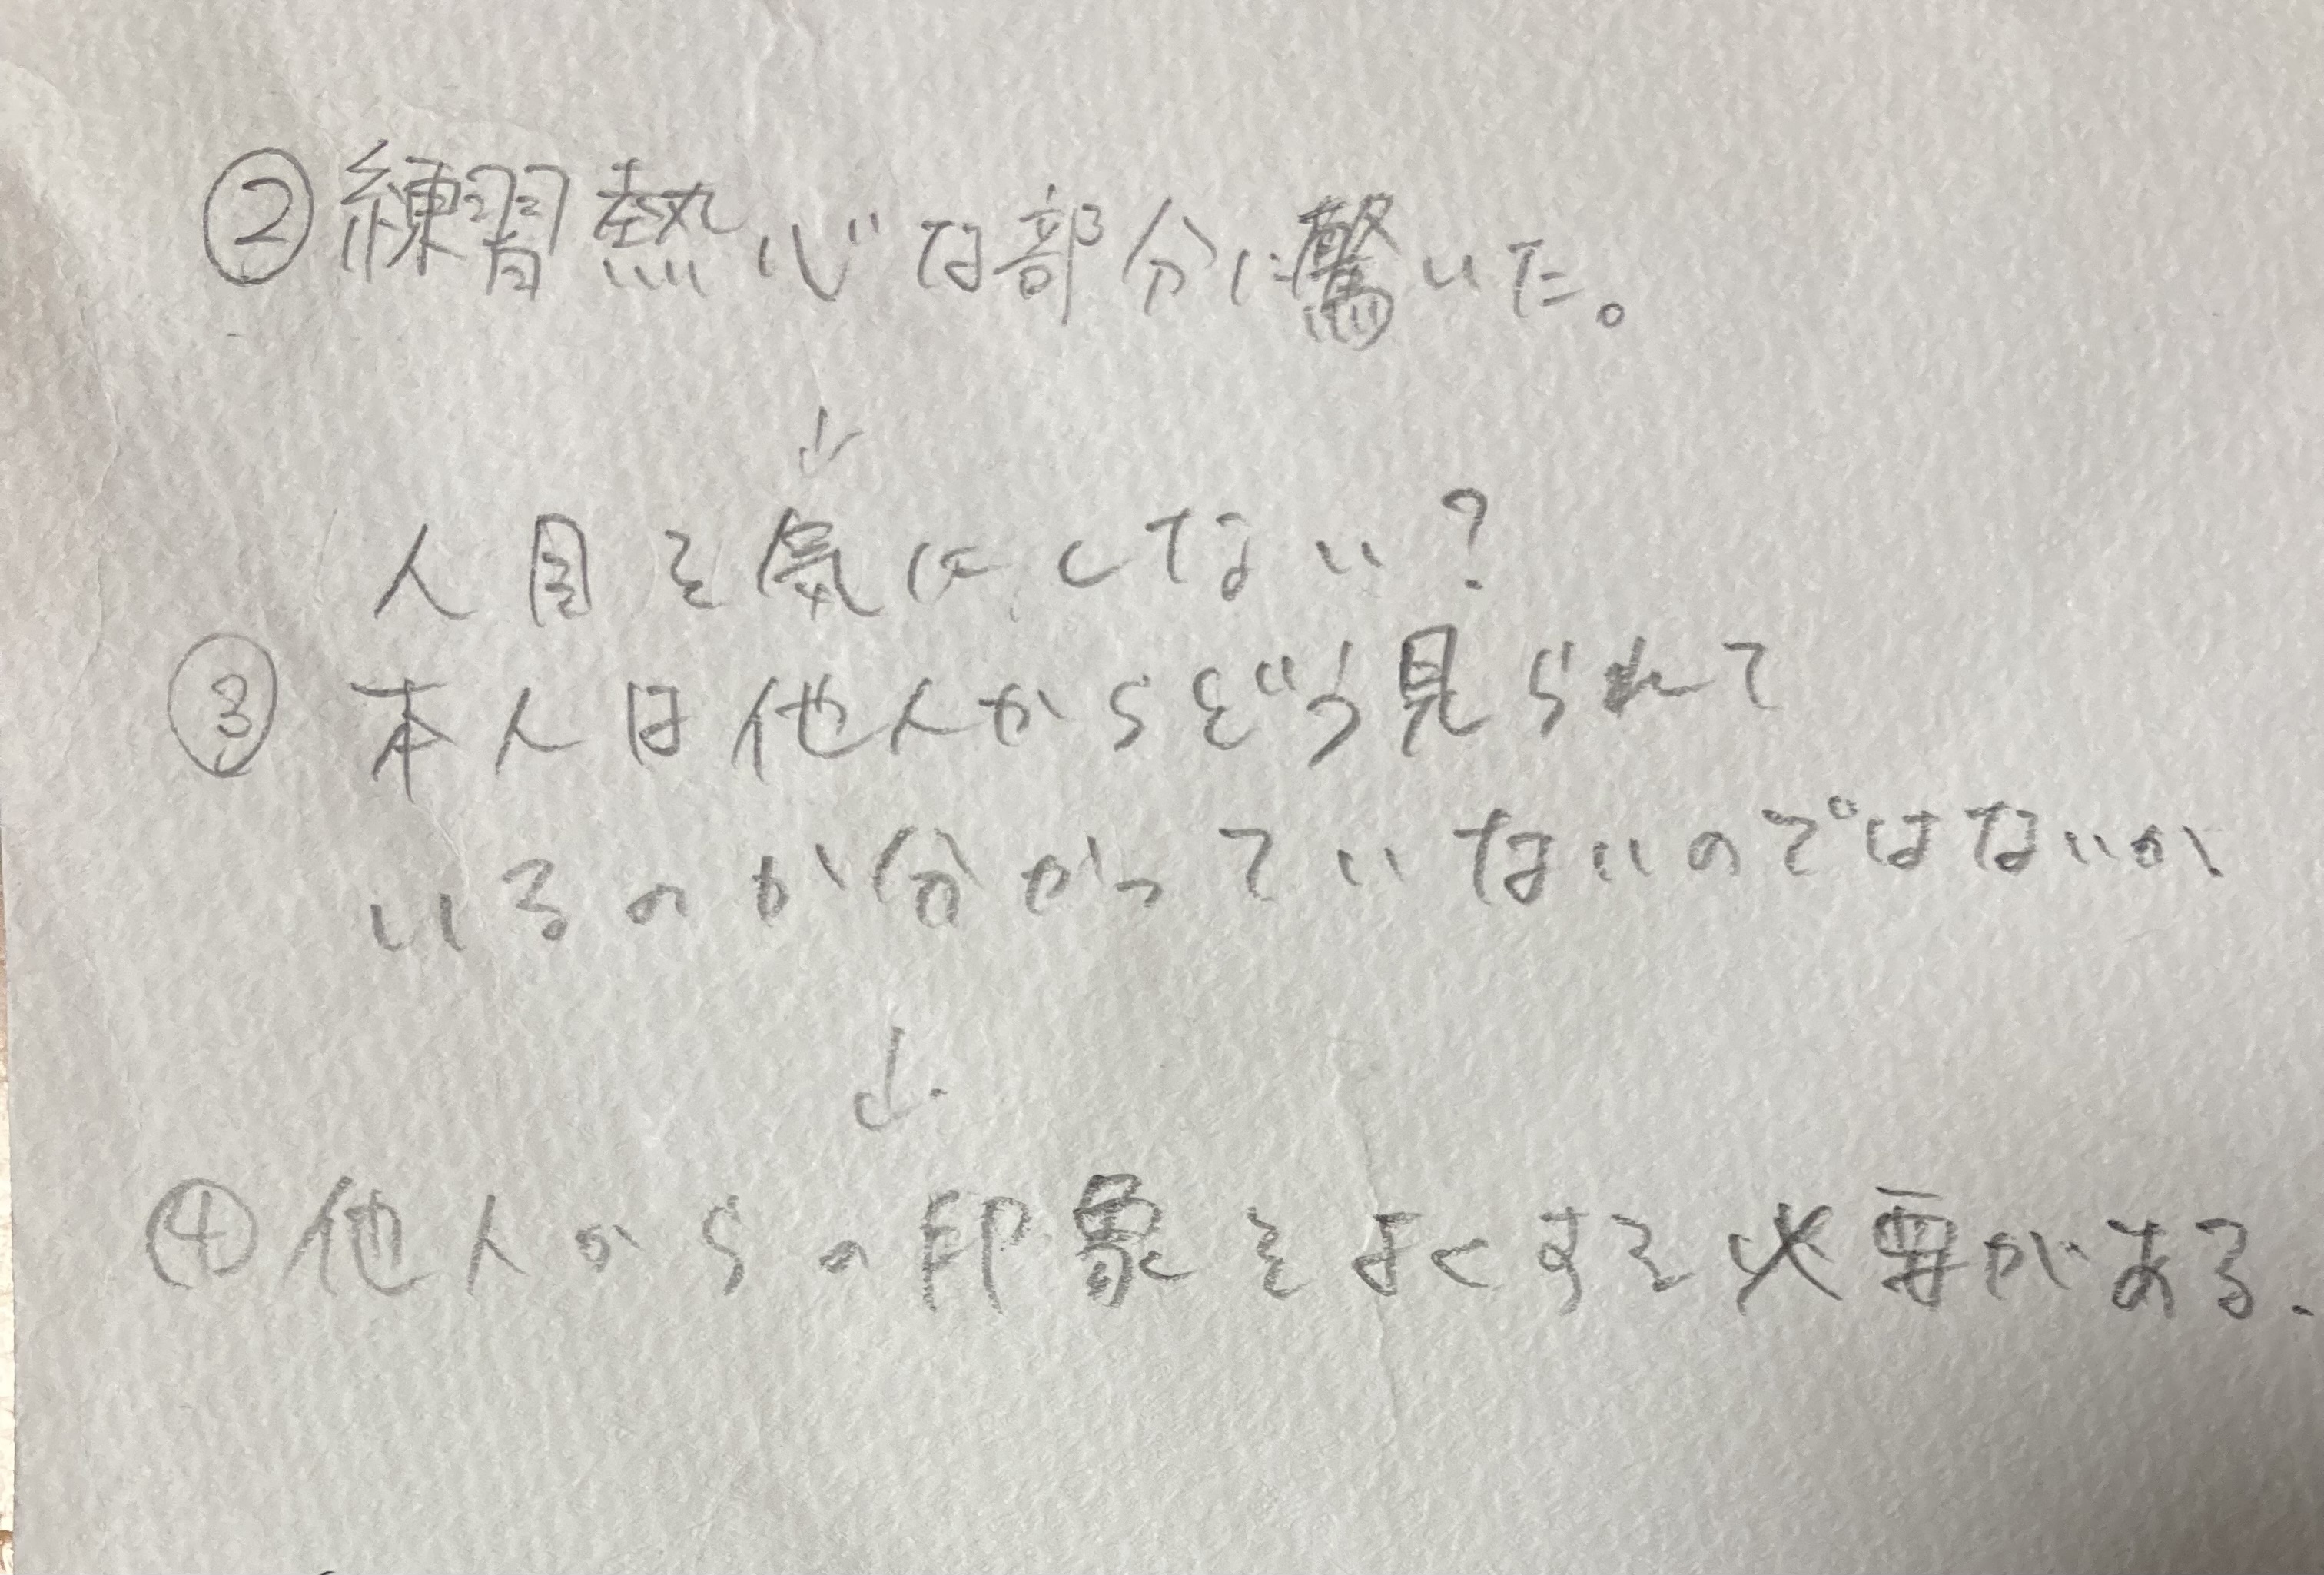 ②練習熱心な部分に驚いた。
↓
人目を気にしない？
③本人は他人からどう見られて
いるのか分かっていないのではないか、
↓
④他人からの印象をよくする必要がある.